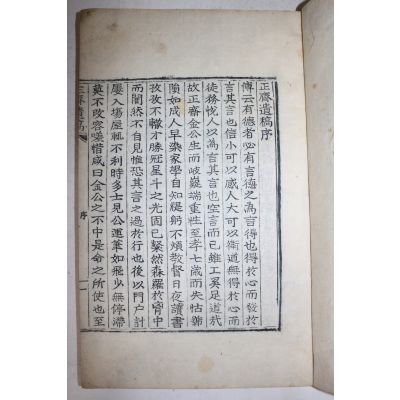 正齋遺稿序
傳云有德者必有言德之爲言得也得於心而
言其言也信小可以感人大可以衛道無得於心而
徒務悅人以爲言其也空言而已雖工奚足道哉
故正齋金公生而岐嶷端重性至孝七歲而失怙
儼如成人早染家學自知禔躬不煩敎督日夜讀書
孜孜不輟才勝冠星斗之光固已粲然森羅於胷中
而闇然不自見惟恐其言之過於行也後以門户計
屢入場屋輒不利時多士見公運筆如飛少無停滯
莫不改容嗟惜咸曰金公之不中是命之所使也至
正齋遺稿 序 一